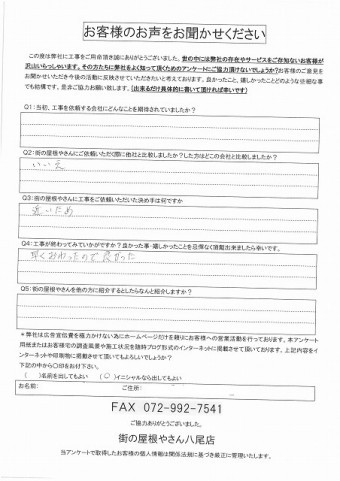 お客様のお声をお聞かせください
この度は弊社に工事をご用命頂き誠にありがとうございました。世の中には弊社の存在やサービスをご存知ないお客様が
沢山いらっしゃいます。その方たちに弊社をよく知って頂くためのアンケートにご協力頂けないでしょうか?お客様のご意見を
お聞かせいただき今後の活動に反映させていただきたいと考えております。良かったこと、嬉しかったことどのような些細な事
でも結構です。是非ご協力お願い致します。(出来るだけ具体的に書いて頂ければ幸いです)
Q1:当初、工事を依頼する会社にどんなことを期待されていましたか?
Q2:街の屋根やさんにご依頼いただく際に他社と比較しましたか?した方はどこの会社と比較しましたか?
いいえ
Q3:街の屋根やさんに工事をご依頼いただいた決め手は何ですか
近いため
Q4:工事が終わってみていかがですか?良かった事・嬉しかったことを忌憚なく頂戴出来ましたら幸いです。
早くおわったので良かった
Q5:街の屋根やさんを他の方に紹介するとしたらなんと紹介しますか?
*弊社は広告宣伝費を極力かけない為にホームページだけを頼りにお客様への営業活動を行っております。本アンケート
用紙またはお客様宅の調査風景や施工状況を随時ブログ形式のインターネットに掲載させて頂いております。上記内容をイ
ンターネットや印刷物に掲載させて頂いてもよろしいでしょうか?
下記の中から〇印をお付け下さい。
( )名前を出してもよい (〇)イニシャルなら出してもよい
お名前: ご住所:
FAX 072-992-7541
ご協力ありがとうございました。
街の屋根やさん八尾店
当アンケートで取得したお客様の個人情報は関係法規に基づき厳正に管理いたします。